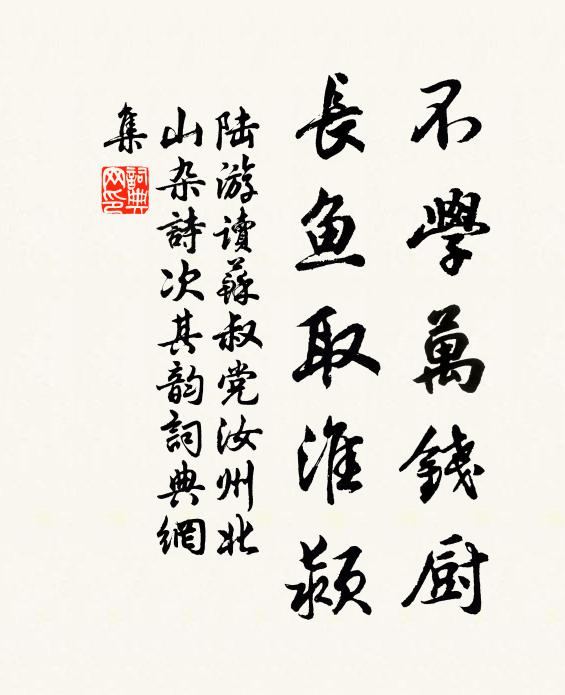 不學萬錢厨
長鱼取淮潁
陆游读蘇叔党汝州北
山杂詩次其韵詞典網
集
詞典
网印